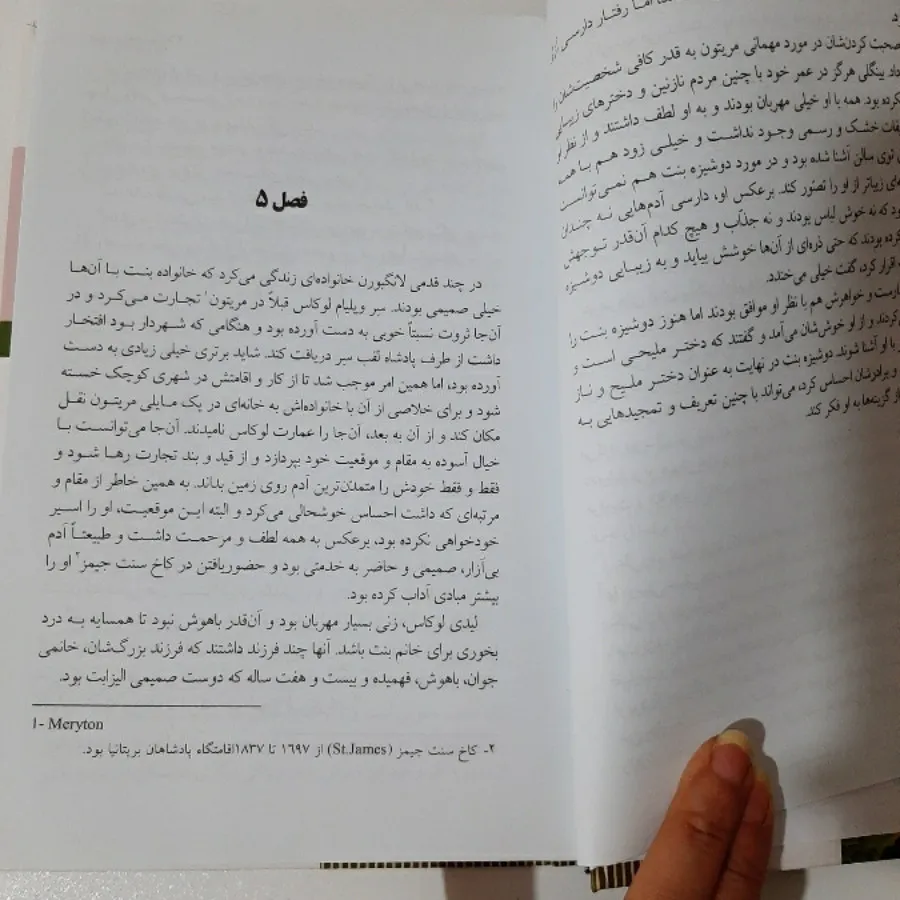 اما رفتار دارسی
صحبت کردن‌شان در مورد مهمانی مریتون به قدر کافی شخصیت‌شان را
بینگلی هرگز در عمر خود با چنین مردم نازنین و دخترهای زیبایی
نکرده بود. همه با او خیلی مهربان بودند و به او لطف داشتند و از نظر او
خشک و رسمی وجود نداشت و خیلی زود هم با همه
توی سالن آشنا شده بود و در مورد دوشیزه بنت هم نمی‌توانست
زیباتر از او را تصور کند. برعکس او، دارسی آدم‌هایی نه چندان
که نه خوش لباس بودند و نه جذاب و هیچ کدام آن‌قدر توجهش
کرده بودند که حتی ذره‌ای از آن‌ها خوشش بیاید و به زیبایی دوشیزه
اقرار کرد، گفت خیلی می‌خندد.
و خواهرش هم با نظر او موافق بودند اما هنوز دوشیزه بنت را
و از او خوش‌شان می‌آمد و گفتند که دختر ملیحی است و
با او آشنا شوند. دوشیزه بنت در نهایت به عنوان دختر ملیح و ناز
و برادرشان احساس کرد، می‌تواند با چنین تعریف و تمجیدهایی به
گزینه‌ها به او فکر کند.
فصل ۵
در چند قدمی لانگبورن خانواده‌ای زندگی می‌کرد که خانواده بنت با آن‌ها
خیلی صمیمی بودند. سر ویلیام لوکاس قبلاً در مریتون۱ تجارت می‌کرد و در
آن‌جا ثروت نسبتاً خوبی به دست آورده بود و هنگامی که شهردار بود افتخار
داشت از طرف پادشاه لقب سیر دریافت کند. شاید برتری خیلی زیادی به دست
آورده بود، اما همین امر موجب شد تا از کار و اقامتش در شهری کوچک خسته
شود و برای خلاصی از آن با خانواده‌اش به خانه‌ای در یک مایلی مریتون نقل
مکان کند و از آن به بعد، آن‌جا را عمارت لوکاس نامیدند. آن‌جا می‌توانست با
خیال آسوده به مقام و موقعیت خود بپردازد و از قید و بند تجارت رها شود و
فقط و فقط خودش را متمدن‌ترین آدم روی زمین بداند. به همین خاطر از مقام و
مرتبه‌ای که داشت احساس خوشحالی می‌کرد و البته این موقعیت، او را اسیر
خودخواهی نکرده بود، برعکس به همه لطف و مرحمت داشت و طبیعتاً آدم
بی‌آزار، صمیمی و حاضر به خدمتی بود و حضوریافتن در کاخ سنت جیمز۲ او را
بیشتر مبادی آداب کرده بود.
لیدی لوکاس، زنی بسیار مهربان بود و آن‌قدر باهوش نبود تا همسایه به درد
بخوری برای خانم بنت باشد. آنها چند فرزند داشتند که فرزند بزرگ‌شان، خانمی
جوان، باهوش، فهمیده و بیست و هفت ساله که دوست صمیمی الیزابت بود.
۱- Meryton
۲- کاخ سنت جیمز (St.James) از ۱۶۹۷ تا ۱۸۳۷اقامتگاه پادشاهان بریتانیا بود.